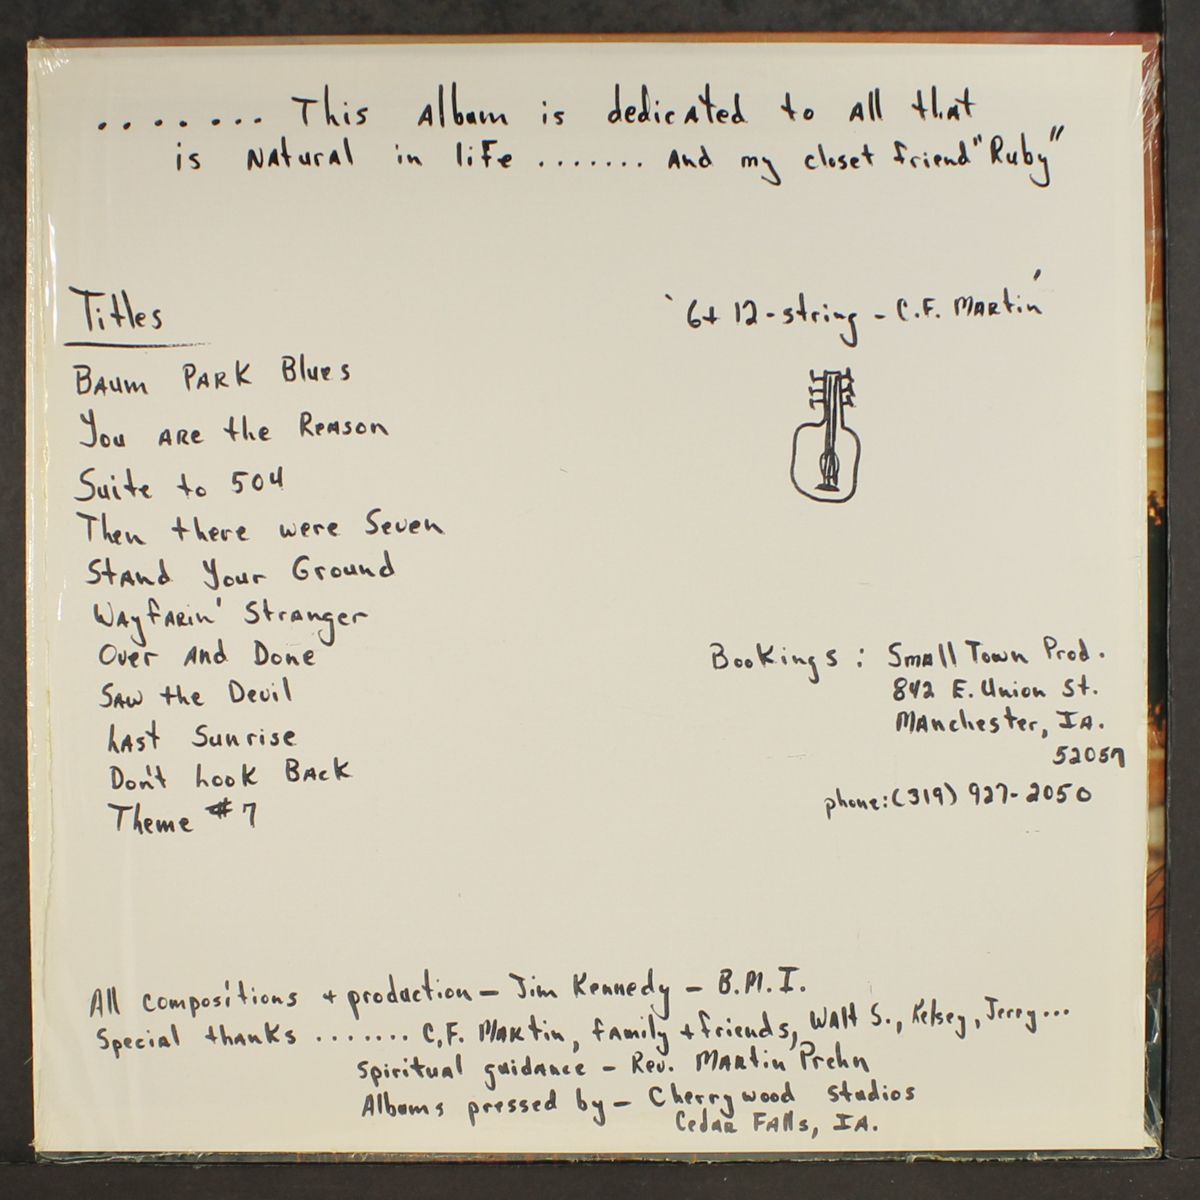 ....... This Album is dedicated to All that
is Natural in life ....... And my closet friend "Ruby"
Titles
Baum Park Blues
You are the Reason
Suite to 504
Then there were Seven
Stand Your Ground
Wayfarin' Stranger
Over and Done
Saw the Devil
Last Sunrise
Don't Look Back
Theme #7
'6+ 12-string - C.F. Martin'
Bookings: Small Town Prod.
842 E. Union St.
Manchester, IA.
52057
phone: (319) 927-2050
All compositions + production - Jim Kennedy - B.M.I.
Special thanks ....... C.F. Martin, family + friends, Walt S., Kelsey, Jerry...
Spiritual guidance - Rev. Martin Prehn
Albums pressed by - Cherrywood Studios
Cedar Falls, IA.